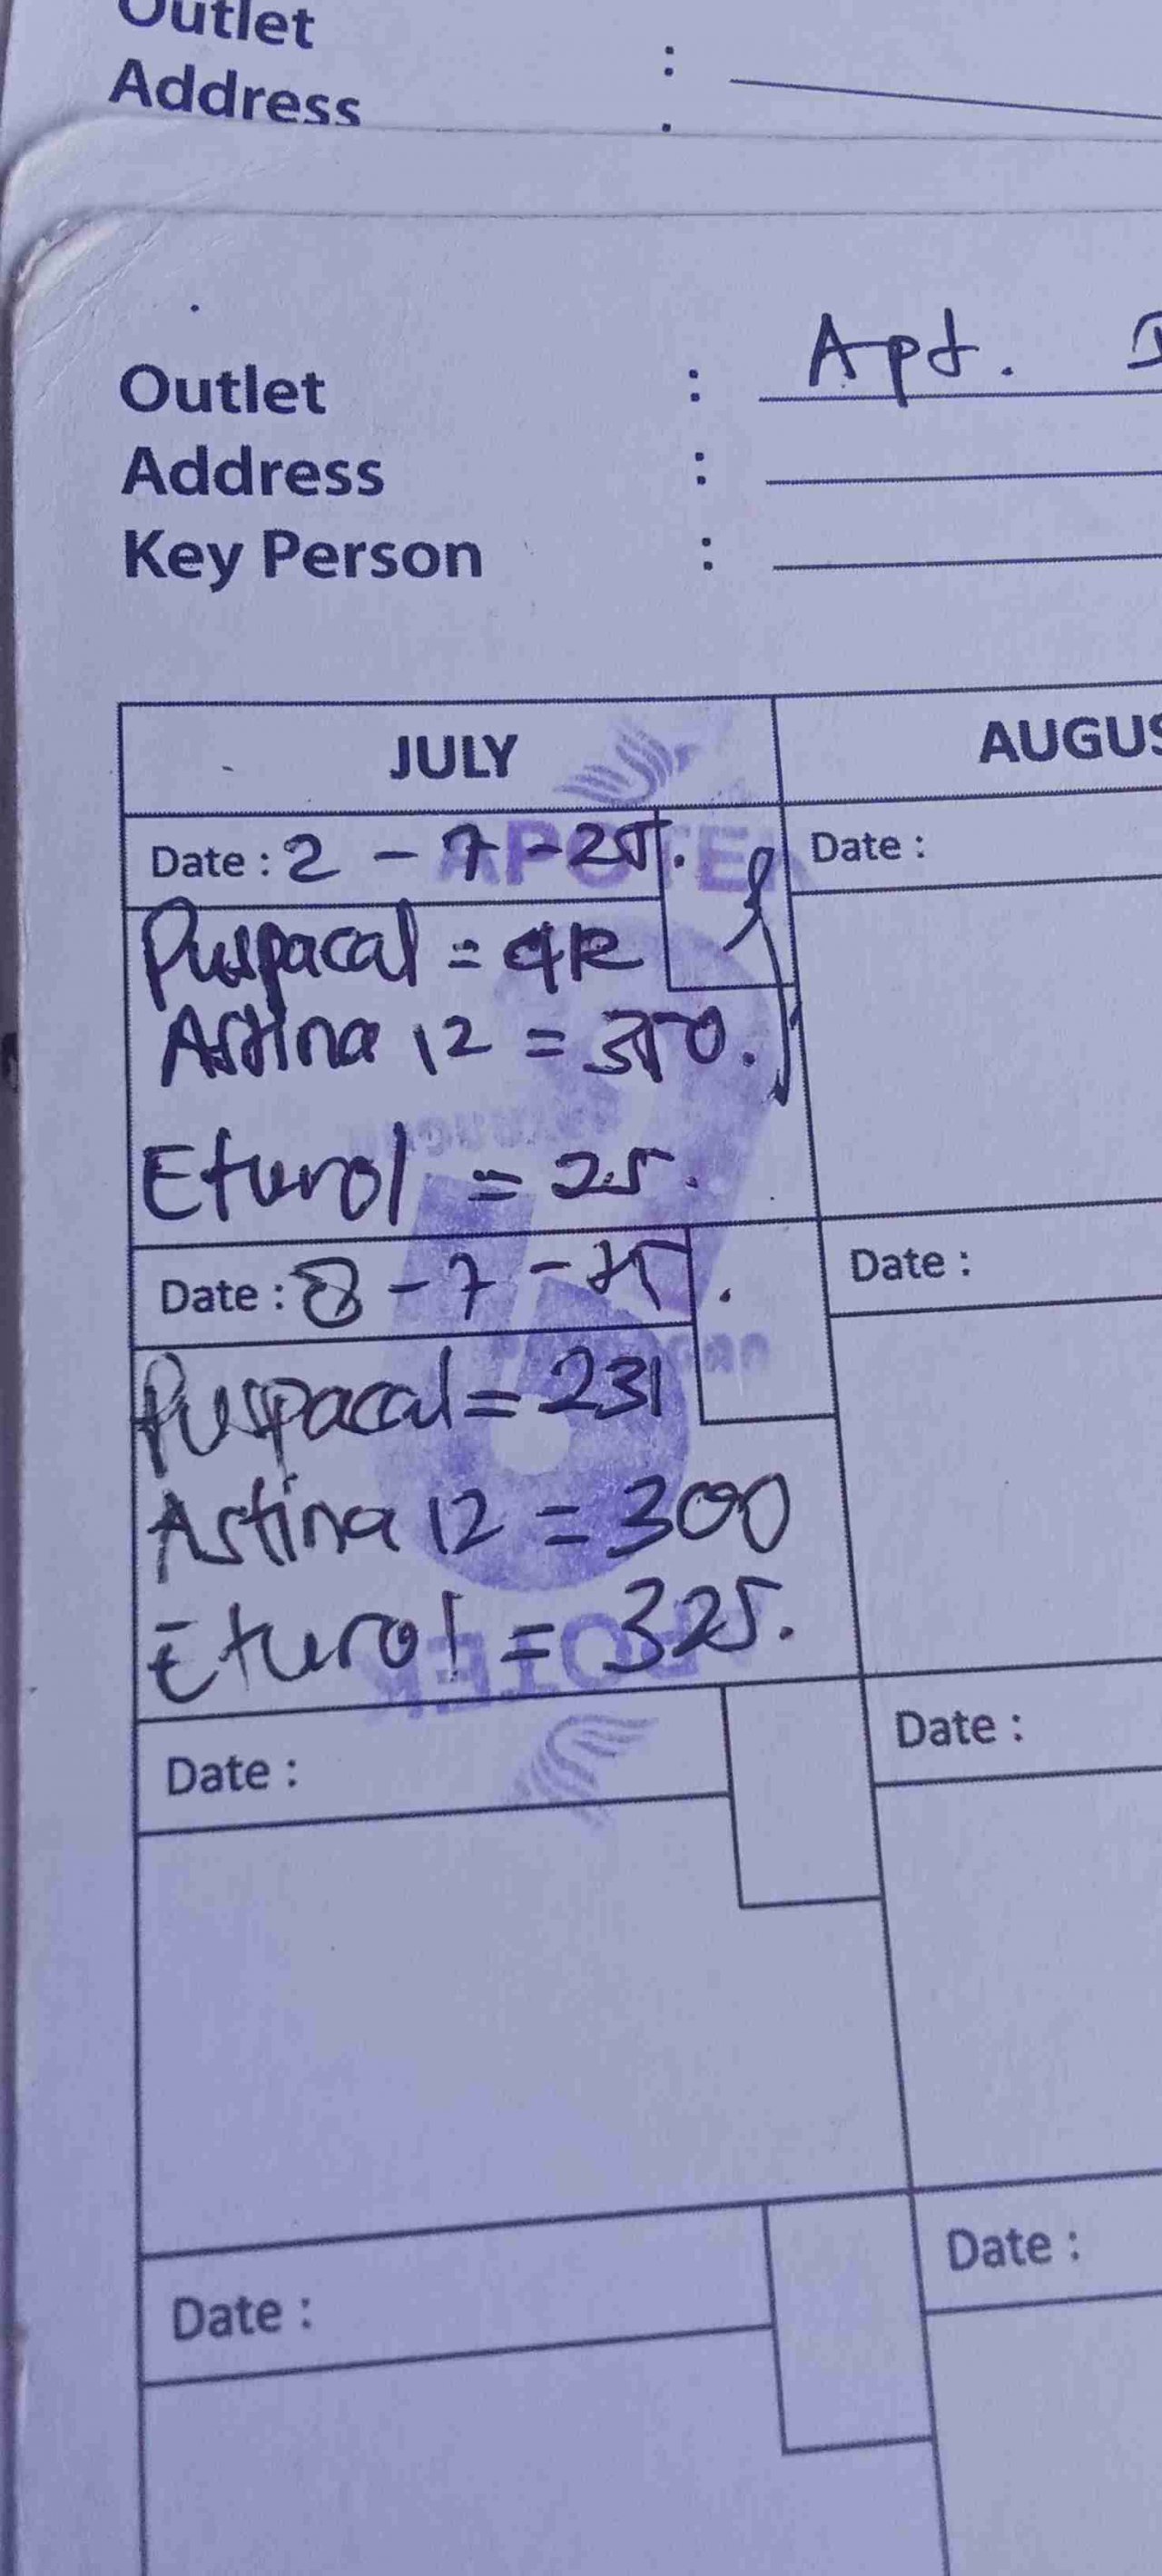 Outlet :
Address
Outlet : Apt.
Address :
Key Person :
JULY
AUGUS
Date : 2 - 7 - 25.
Date :
Puspacal =
Astina 12 = 350.
Eturol = 25.
Date : 8 - 7 - 25
Date :
Puspacal = 231
Astina 12 = 300
Eturol = 325.
Date :
Date :
Date :
Date :
APOTEK
APOTEK